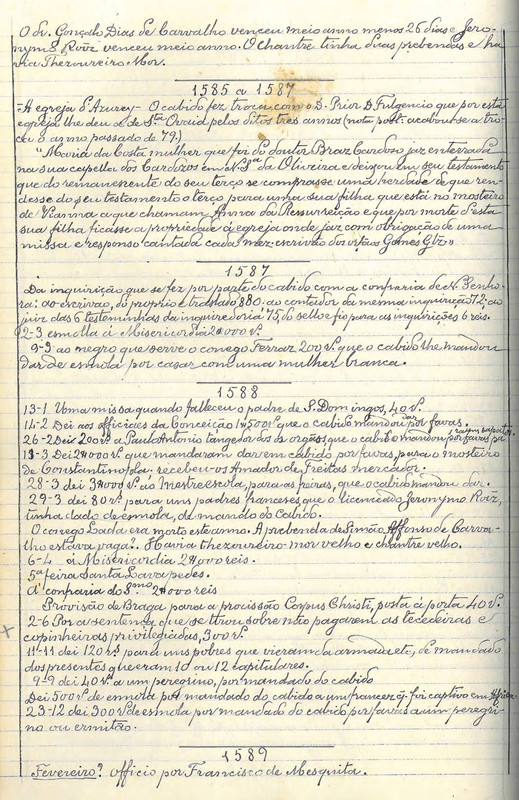 O dr. Gonçalo Dias de Carvalho venceu meio anno menos 26 dias e Jero-
nymo Roiz venceu meio anno. O Chantre tinha duas prebendas e ha-
via Thezoureiro Mor.
1585 a 1587
- A egreja d'Azurey - O cabido fez troca com o D. Prior D. Fulgencio que por esta
egreja lhe deu a de Sta Ovaia pelos ditos tres annos (nota post. acabou-se a tro-
ca o anno passado de 79.)
"Maria da Costa mulher que foi do doutor Braz Cardoso jaz enterrada
na sua capella dos Cardosos em N. Sa da Oliveira e deixou em seu testamento
que do remanecente do seu terço se comprasse uma herdade de que ren-
desse do seu testamento o terço, para uma sua filha que está no mosteiro
de Vianna a que chamam Anna da Resurreição e que por morte d'esta
sua filha ficasse a propriedade á egreja onde jaz com obrigação de uma
missa e responso cantada cada mez. escrivão dos orfãos Games Glz»
1587
Da inquirição que se fez por parte do cabido com a confraria de N. Senho-
ra: ao escrivão, do proprio e traslado 880. ao contador da mesma inquirição 72. ao
juiz das 6 testeminhas da inquiredoria 75, do sello e fio para as inquirições 6 reis.
2-3 esmolla á Misericordia 2$000 rs.
9-3 ao negro que serve o conego Ferraz 200 rs. que o cabido lhe mandou
dar de esmola por casar com uma mulher branca.
1588
13-1 Uma missa quando falleceu o padre de S. Domingos, 40 rs.
14-2 Dei aos officiaes da Conceição 1$500 rs que o cabido mandou dar por favas.
26-2 Dei 200 rs a Paulo Antonio tangedor dos orgãos que o cabido mandou por favas pa
ra uns sapatos
13-3 Dei 2$000 rs que mandaram dar em cabido por favas, para o mosteiro
de Constantinopla. recebeu-os Amador de Freitas mercador.
28-3 dei 3$000 rs. ao Mestre escola, para as freiras, que o cabido mandou dar.
29-3 dei 80 rs. para uns padres francezes que o licenceado Jeronymo Roiz,
tinha dado de esmola, de mandado do Cabido.
O conego Lada era morto este anno. A prebenda de Simão Affonso de Carva-
lho estava vaga?. Havia thezoureiro-mor velho e chantre velho.
6-4 á Misericordia 2$000 reis.
5ª feira Santa Lava pedes.
Á confraria do S.mo 2$000 reis
Provisão de Braga para a procissão Corpus Christi, posta á porta 40 rs.
2-6 Por a sentença que se tirou sobre não pagarem as tecedeiras e
copinheiras privilegiadas, 300 rs.
11-11 dei 120 rs. para uns pobres que vieram da armada etc, de mandado
dos presentes que eram 10 ou 12 capitulares.
9-9 dei 40 rs. a um peregrino, por mandado do cabido
Dei 500 rs de esmola por mandado do cabido a um francez q. foi captivo em Africa
23-12 dei 300 rs de esmola por mandado do cabido por favas a um peregri-
no ou ermitão.
1589
Fevereiro? officio por Francisco de Mesquita.